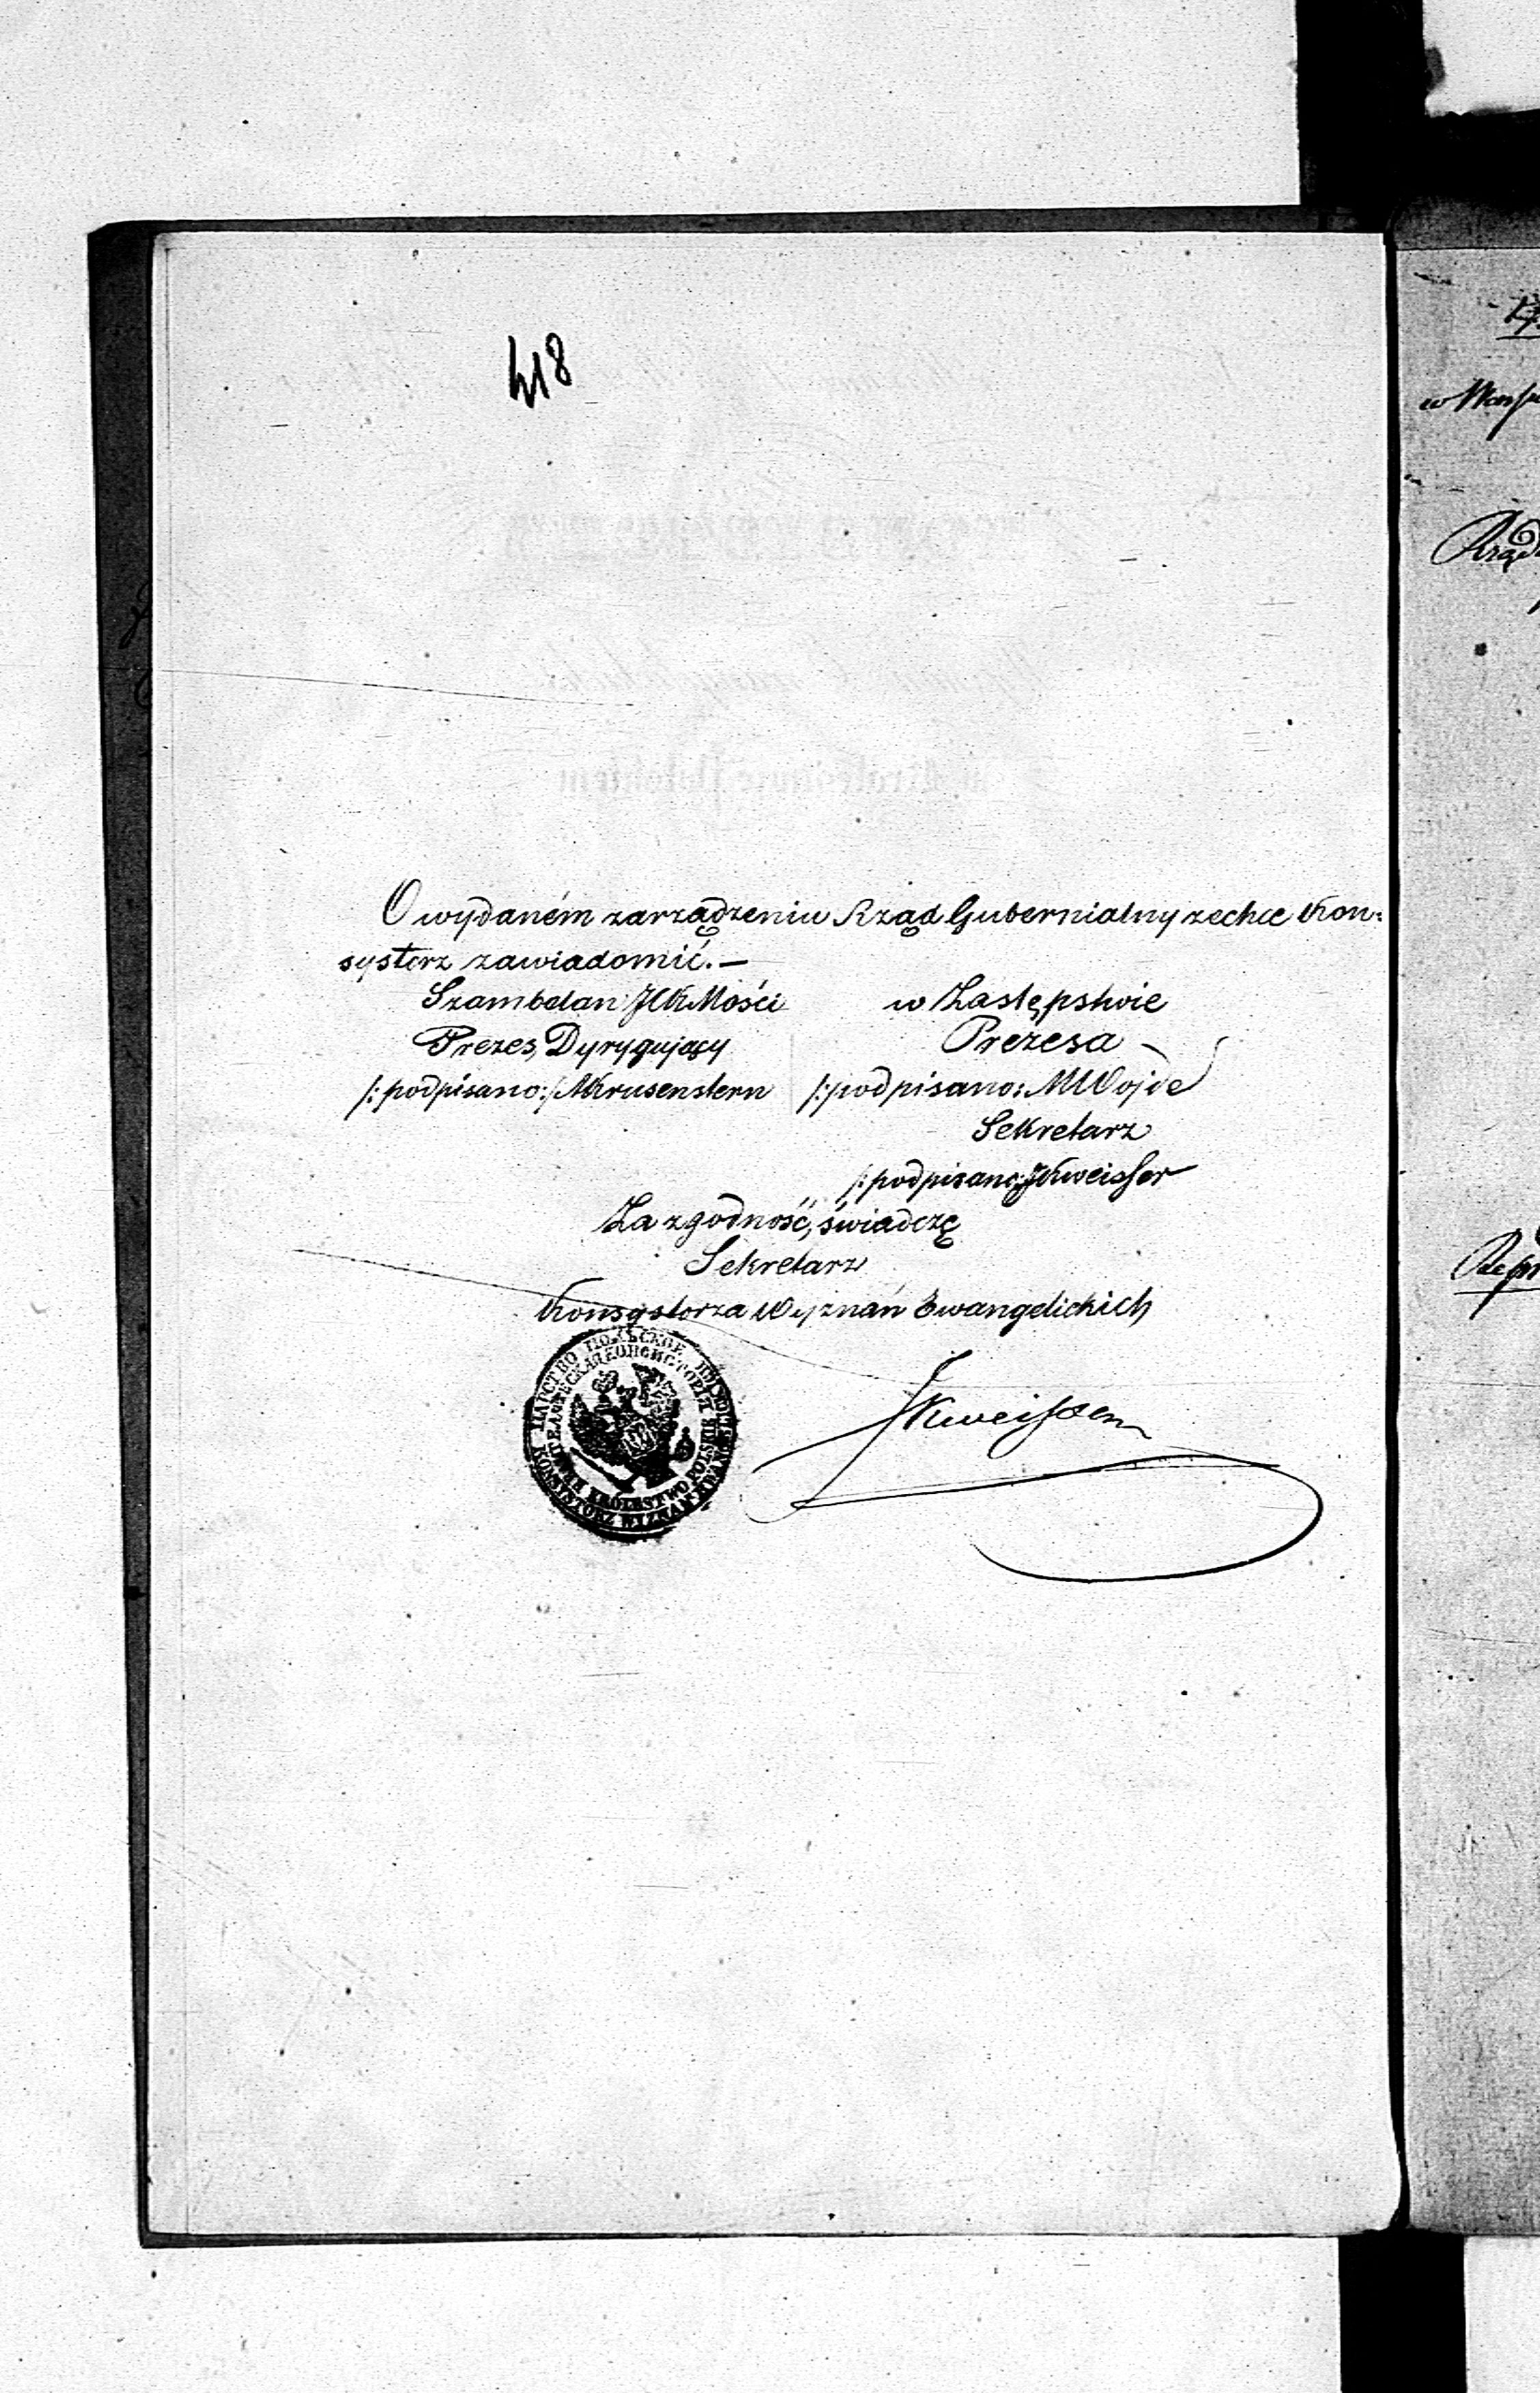 418
O wydaném zarządzeniu Rząd Gubernialny zechce Kon=
systorz zawiadomić.—
Szambelan JCKMości
Prezes, Dyrygujący
/:podpisano:/ MKrusenstern
w Zastępstwie
Prezesa
/:podpisano: MWojde
Sekretarz
/:podpisano: JKweisser
Za zgodność, świadczę
Sekretarz
Konsystorza Wyznań Ewangelickich
ЦАРСТВО ПОЛЬСКОЕ
KRÓLESTWO POLSKIE
KONSYSTORZ WYZNAŃ EWANGELICKICH
JKweisser
w